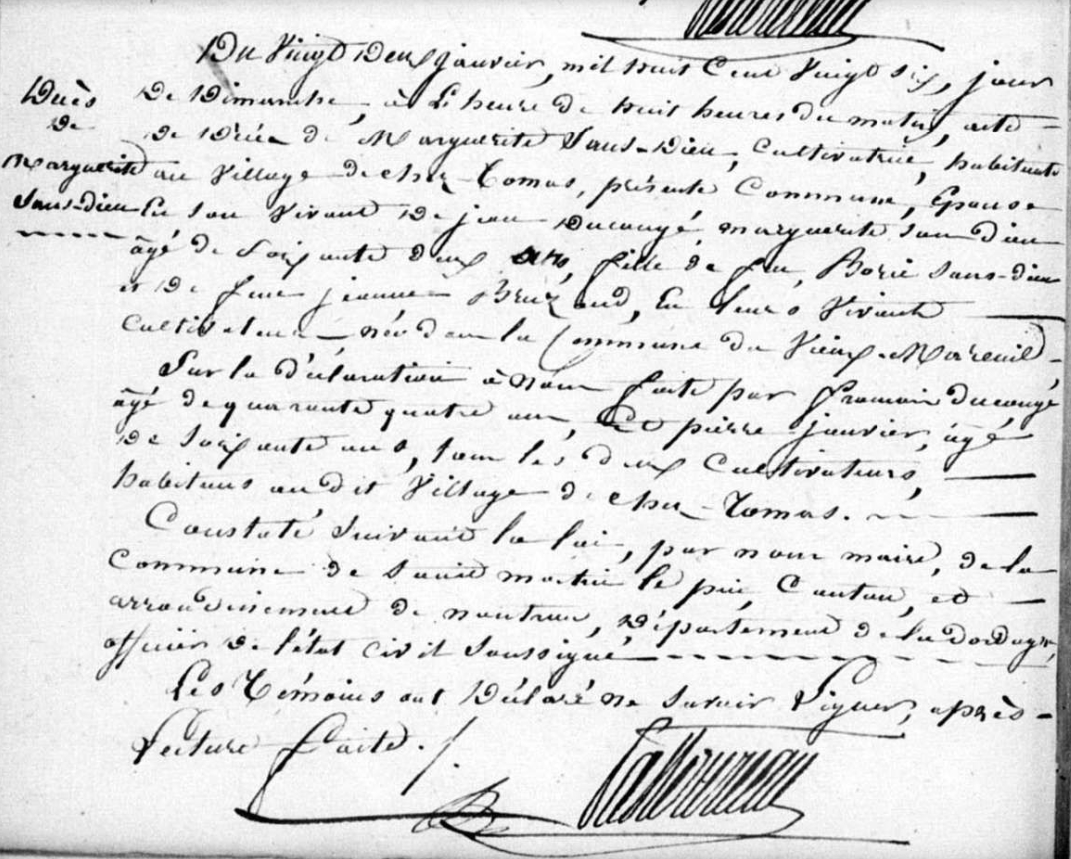 Du Vingt Deux janvier, mil huit Cent Vingt Six, jour
De Dimanche, à L'heure De huit heures du matin, acte
De Décès de Marguerite Sans-Dieu, Cultivatrice, habitante
au Village de chez-Tomas, présente Commune, Epouse
En son Vivant De jean Ducongé, marguerite san dieu
âgé de Soixante deux ans, fille de feu, Sans-dieu
et De feue jeanne En leurs Vivants
cultivateurs, née dans la Commune du Vieux-Mareuil
Sur la déclaration à nous faite par françois ducongé
âgé de quarante quatre ans, Et pierre janvier, âgé
de Soixante ans, tous les deux Cultivateurs,
habitans au dit Village de chez-Tomas.
Constaté Suivant la loi, par nous maire, de la
Commune de Saint martin le pin, Canton, et
arrondissement de nontron, Département de la Dordogne,
officier De l'état Civil Soussigné
Les Témoins ont Déclaré ne Savoir Signer, après
Lecture faite.
Décès
De
Marguerite
Sans-dieu